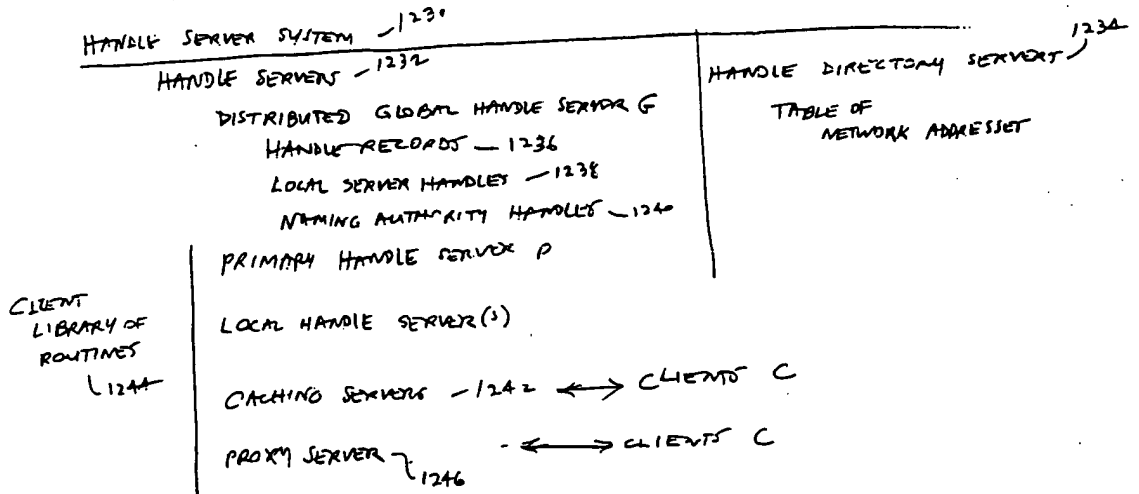 HANDLE SERVER SYSTEM 1230
HANDLE SERVERS 1232
DISTRIBUTED GLOBAL HANDLE SERVER G
HANDLE RECORDS 1236
LOCAL SERVER HANDLES 1238
NAMING AUTHORITY HANDLES 1240
PRIMARY HANDLE SERVER P
LOCAL HANDLE SERVER(S)
CACHING SERVERS 1242 CLIENTS C
PROXY SERVER 1246 CLIENTS C
CLIENT
LIBRARY OF
ROUTINES
1244
HANDLE DIRECTORY SERVERS 1234
TABLE OF
NETWORK ADDRESSES